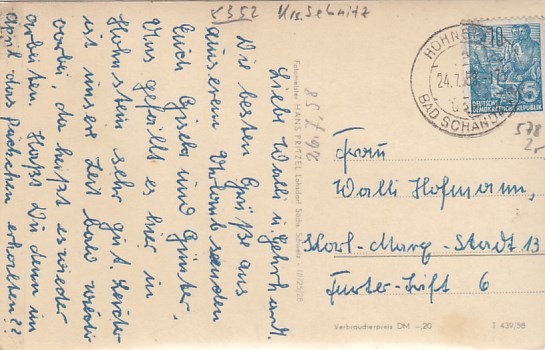 5352 Krs. Sebnitz
Liebe Walli u. Gerhard.
Die besten Grüße aus
unserem Urlaub senden
Euch Gisela und Günter,
Uns gefällt es hier in
Hohnstein sehr gut. Leider
ist unsere Zeit bald wieder
vorbei, da heißt es wieder
arbeiten. Habt Du denn im
April das Päckchen erhalten??
Fotomeister HANS PRITZEL
26.7.58
HOHNSTEIN
24.7.58
BAD SCHANDAU
10
5
DEUTSCHE
DEMOKRATISCHE REPUBLIK
578
Frau
Walli Hofmann,
Karl-Marx-Stadt 13
Further-Stift 6
Verbraucherpreis DM –,20
J 439/58